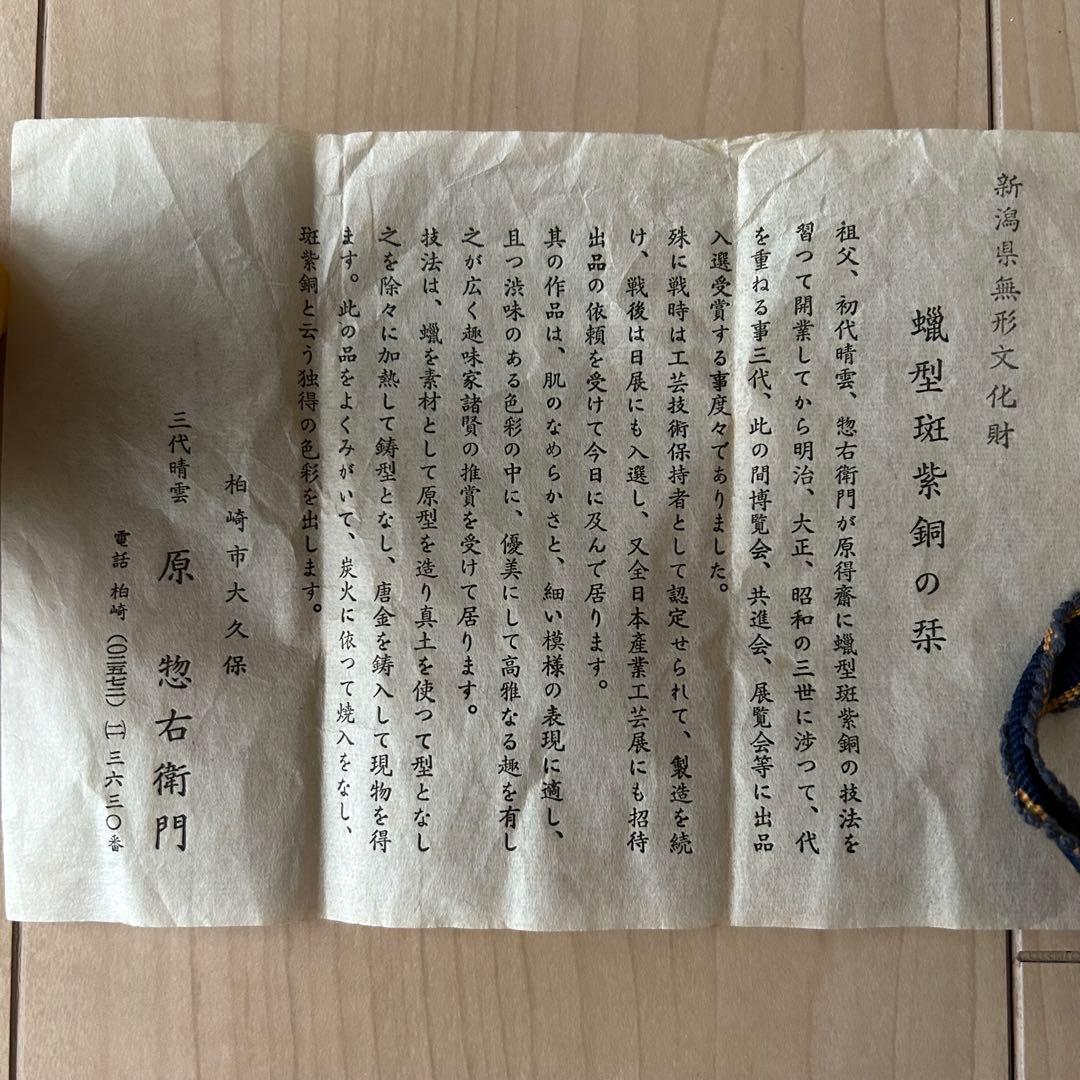 新潟県無形文化財
蠟型斑紫銅の栞
祖父、初代晴雲、惣右衛門が原得齋に蠟型斑紫銅の技法を
習つて開業してから明治、大正、昭和の三世に渉つて、代
を重ねる事三代、此の間博覧会、共進会、展覧会等に出品
入選受賞する事度々でありました。
殊に戦時は工芸技術保持者として認定せられて、製造を続
け、戦後は日展にも入選し、又全日本産業工芸展にも招待
出品の依頼を受けて今日に及んで居ります。
其の作品は、肌のなめらかさと、細い模様の表現に適し、
且つ渋味のある色彩の中に、優美にして高雅なる趣を有し
之が広く趣味家諸賢の推賞を受けて居ります。
技法は、蠟を素材として原型を造り真土を使つて型となし
之を除々に加熱して鋳型となし、唐金を鋳入して現物を得
ます。此の品をよくみがいて、炭火に依つて焼入をなし、
斑紫銅と云う独得の色彩を出します。
柏崎市大久保
三代晴雲 原惣右衛門
電話 柏崎(〇二五七二)(二)三六三〇番